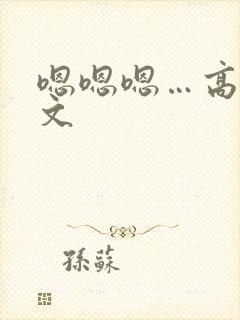 嗯嗯嗯…高
文
孫蘇